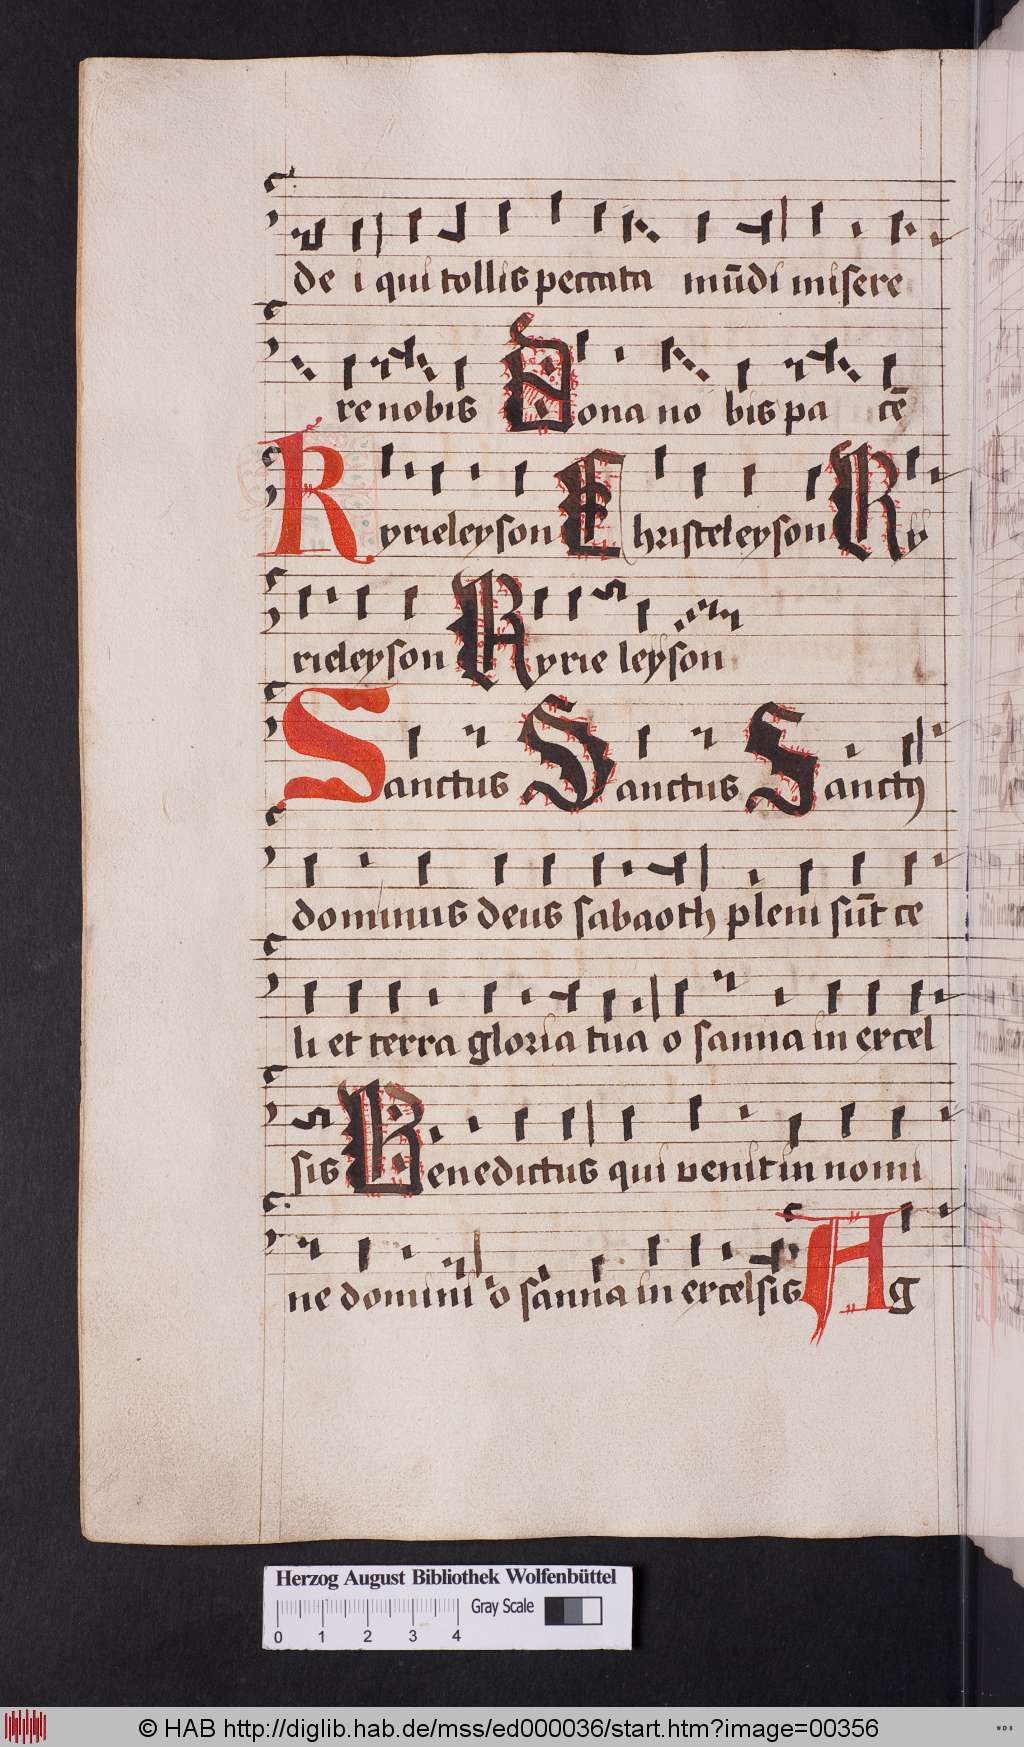 de i qui tollis peccata mūdi misere
re nobis Dona no bis pa cē
Kyrieleyson Christeleyson Ky
rieleyson Kyrie leyson
Sanctus Sanctus Sanctꝰ
dominus deus sabaoth pleni sūt ce
li et terra gloria tua o sanna in excel
sis Benedictus qui venit in nomi
ne domini o sanna in excelsis Ag
Herzog August Bibliothek Wolfenbüttel
Gray Scale
0 1 2 3 4
© HAB http://diglib.hab.de/mss/ed000036/start.htm?image=00356